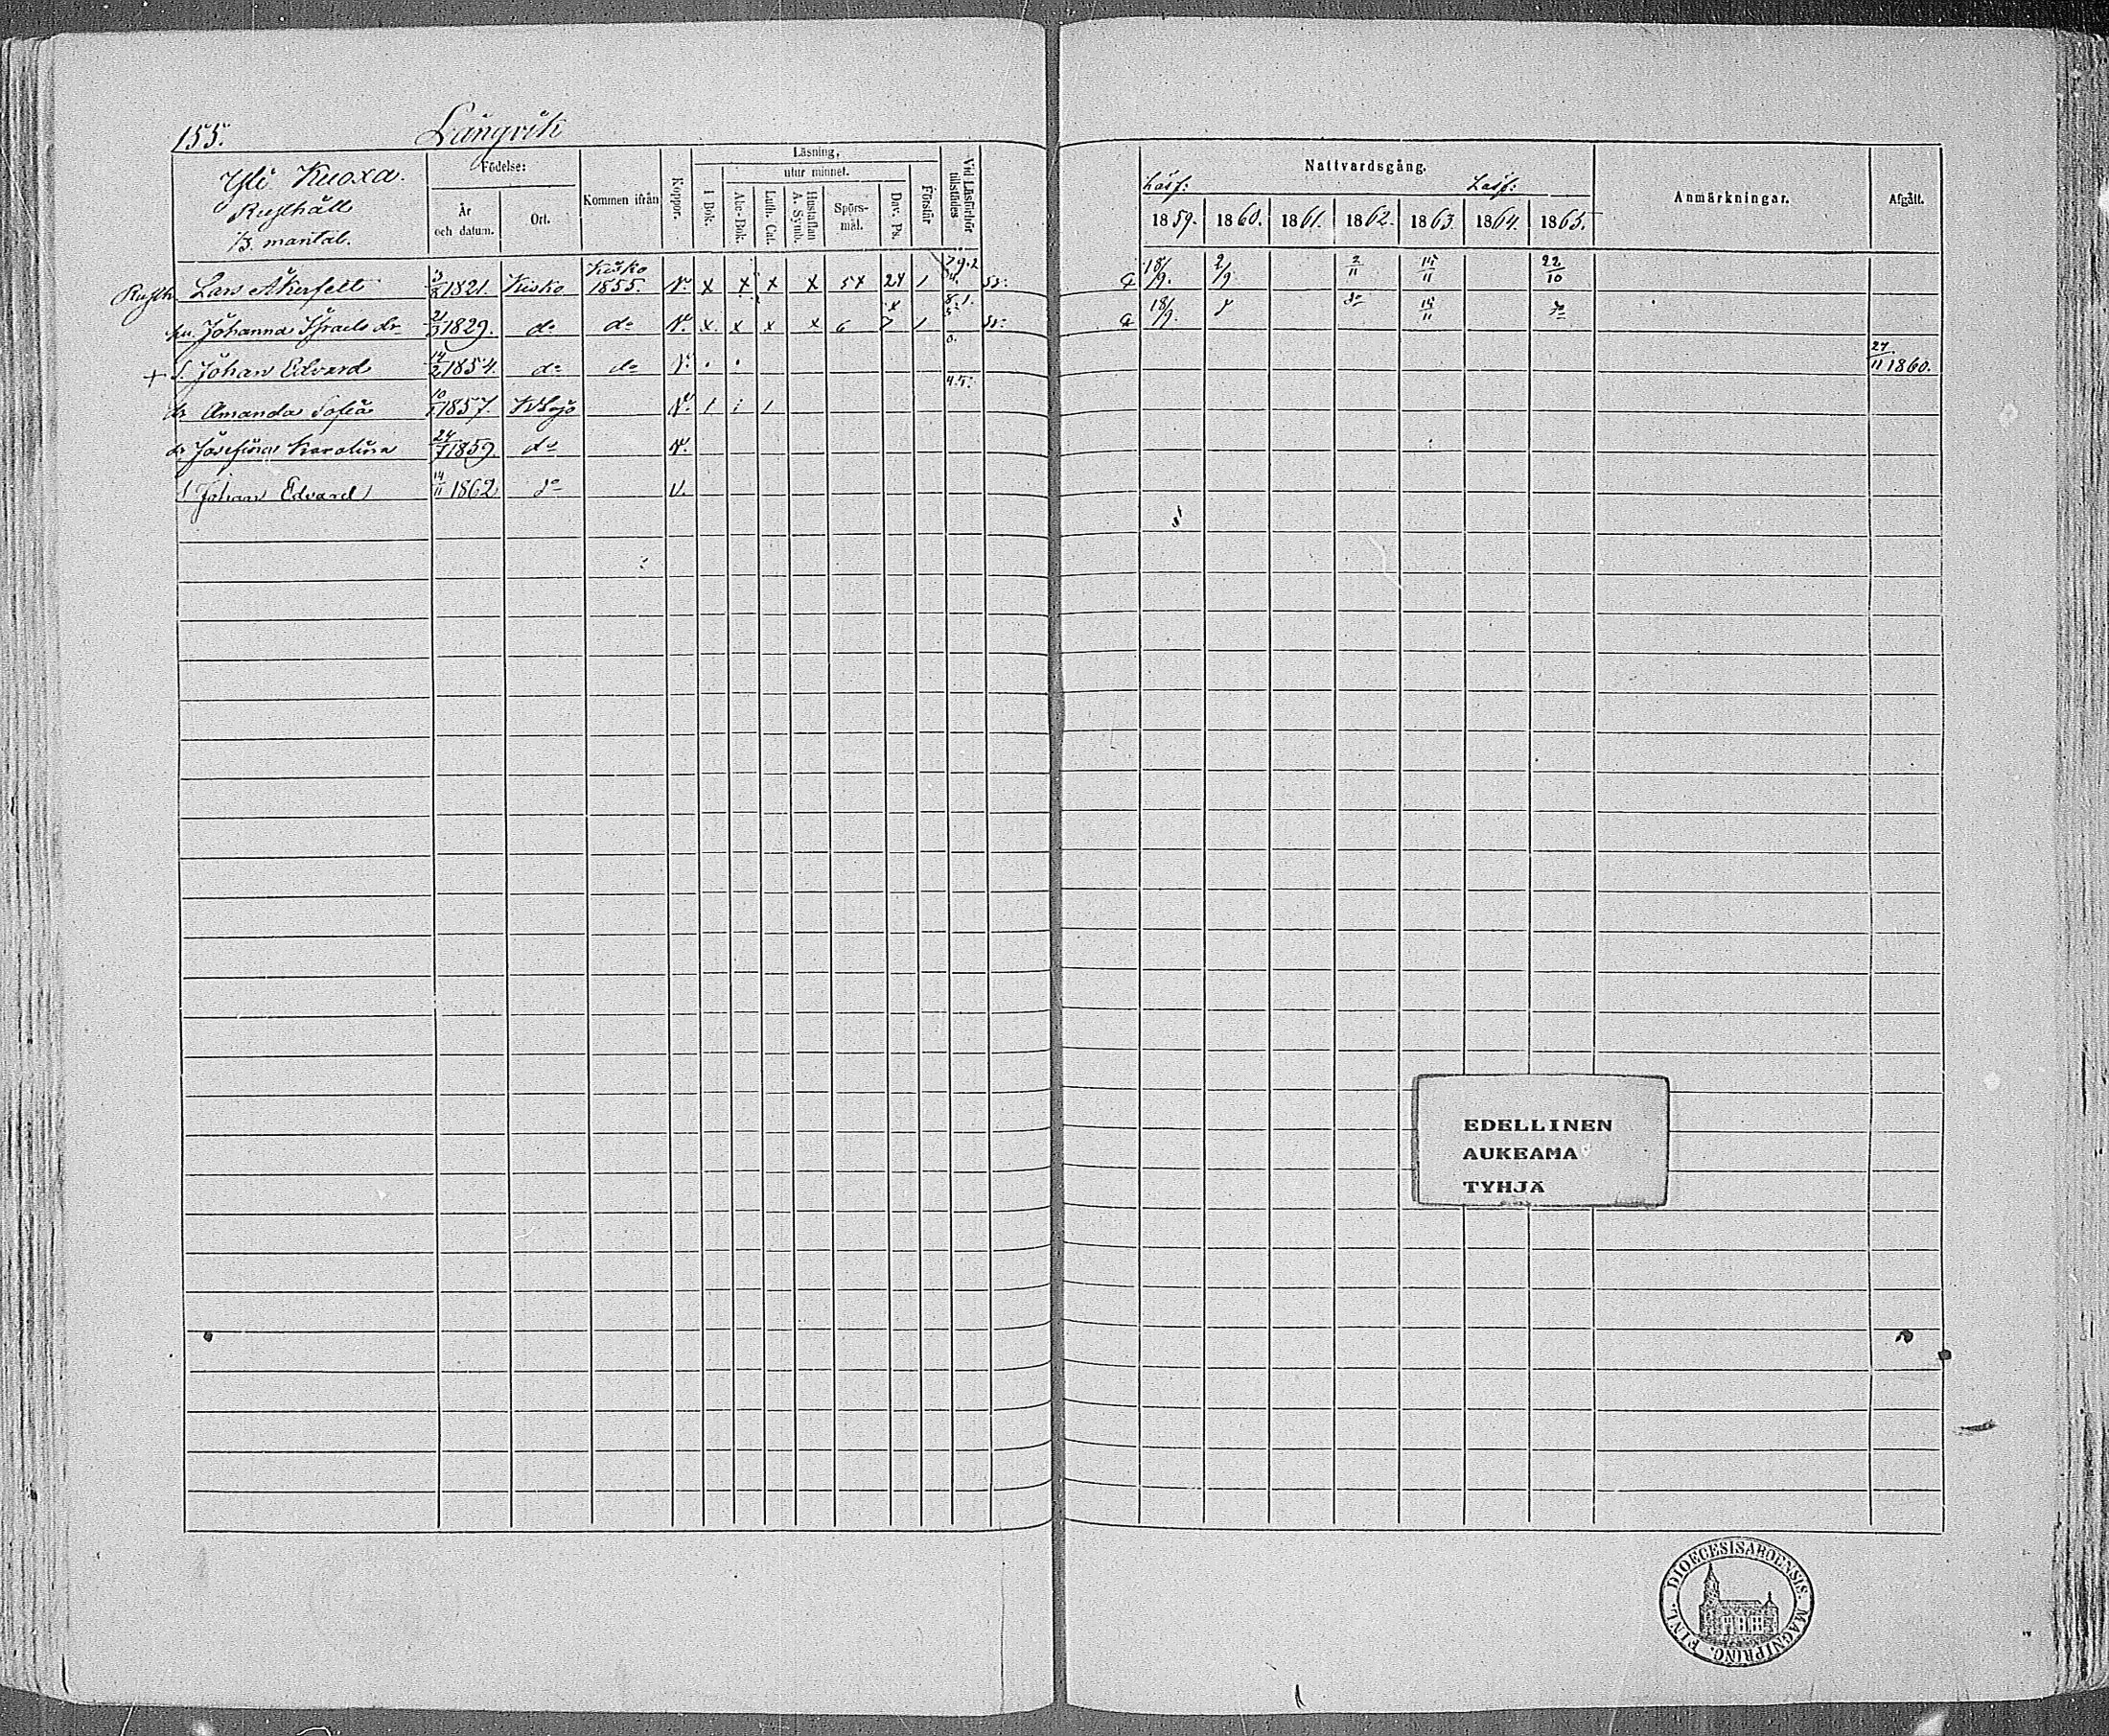 155. Långvik
Yli Kuoxa.
Rusthåll
1/3 mantal.
Födelse:
År och datum.
Ort.
Kommen ifrån
Koppor.
Läsning,
I Bok.
utur minnet.
Abc-Bok.
Luth. Cat.
Hustaflan A. Symb.
Spörsmål.
Dav. Ps.
Förstår
Vid Läsförhör tillstädes
Nattvardsgång.
Läsf: Läsf:
1859. 1860. 1861. 1862. 1863. 1864. 1865.
Anmärkningar.
Afgått.
Rusth. Lars Åkerfelt 1821. Kisko Kisko 1855. V. x x x x 5x 24 1 18/9. 2/9 2/11 15/11 22/10
hu. Johanna Israels dr 1829. do do V. x x x x 6 7 1 18/9. do 15/11 do
+ S. Johan Edvard 14/2 1854. do do V. 27/11 1860.
dr Amanda Sofia 1857. V. 1 1 1
dr Josefina Karolina 24/7 1859 do V.
S Johan Edvard 14/11 1862 do V.
EDELLINEN
AUKEAMA
TYHJÄ
DIOECESIS ABOENSIS. MAGNI PRINC. FINL.